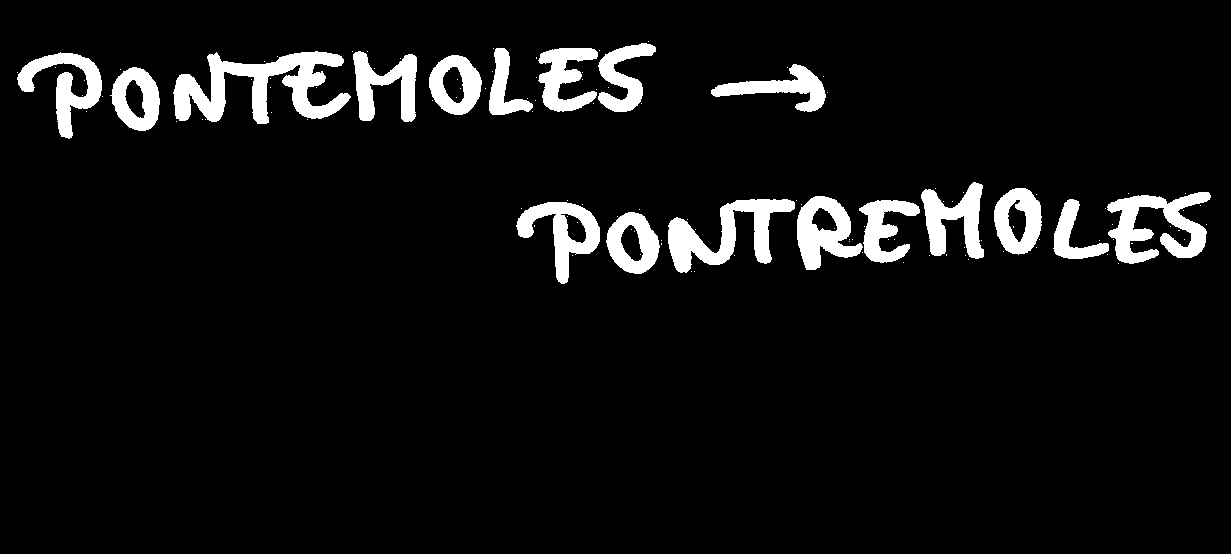 PONTEMOLES →
PONTREMOLES